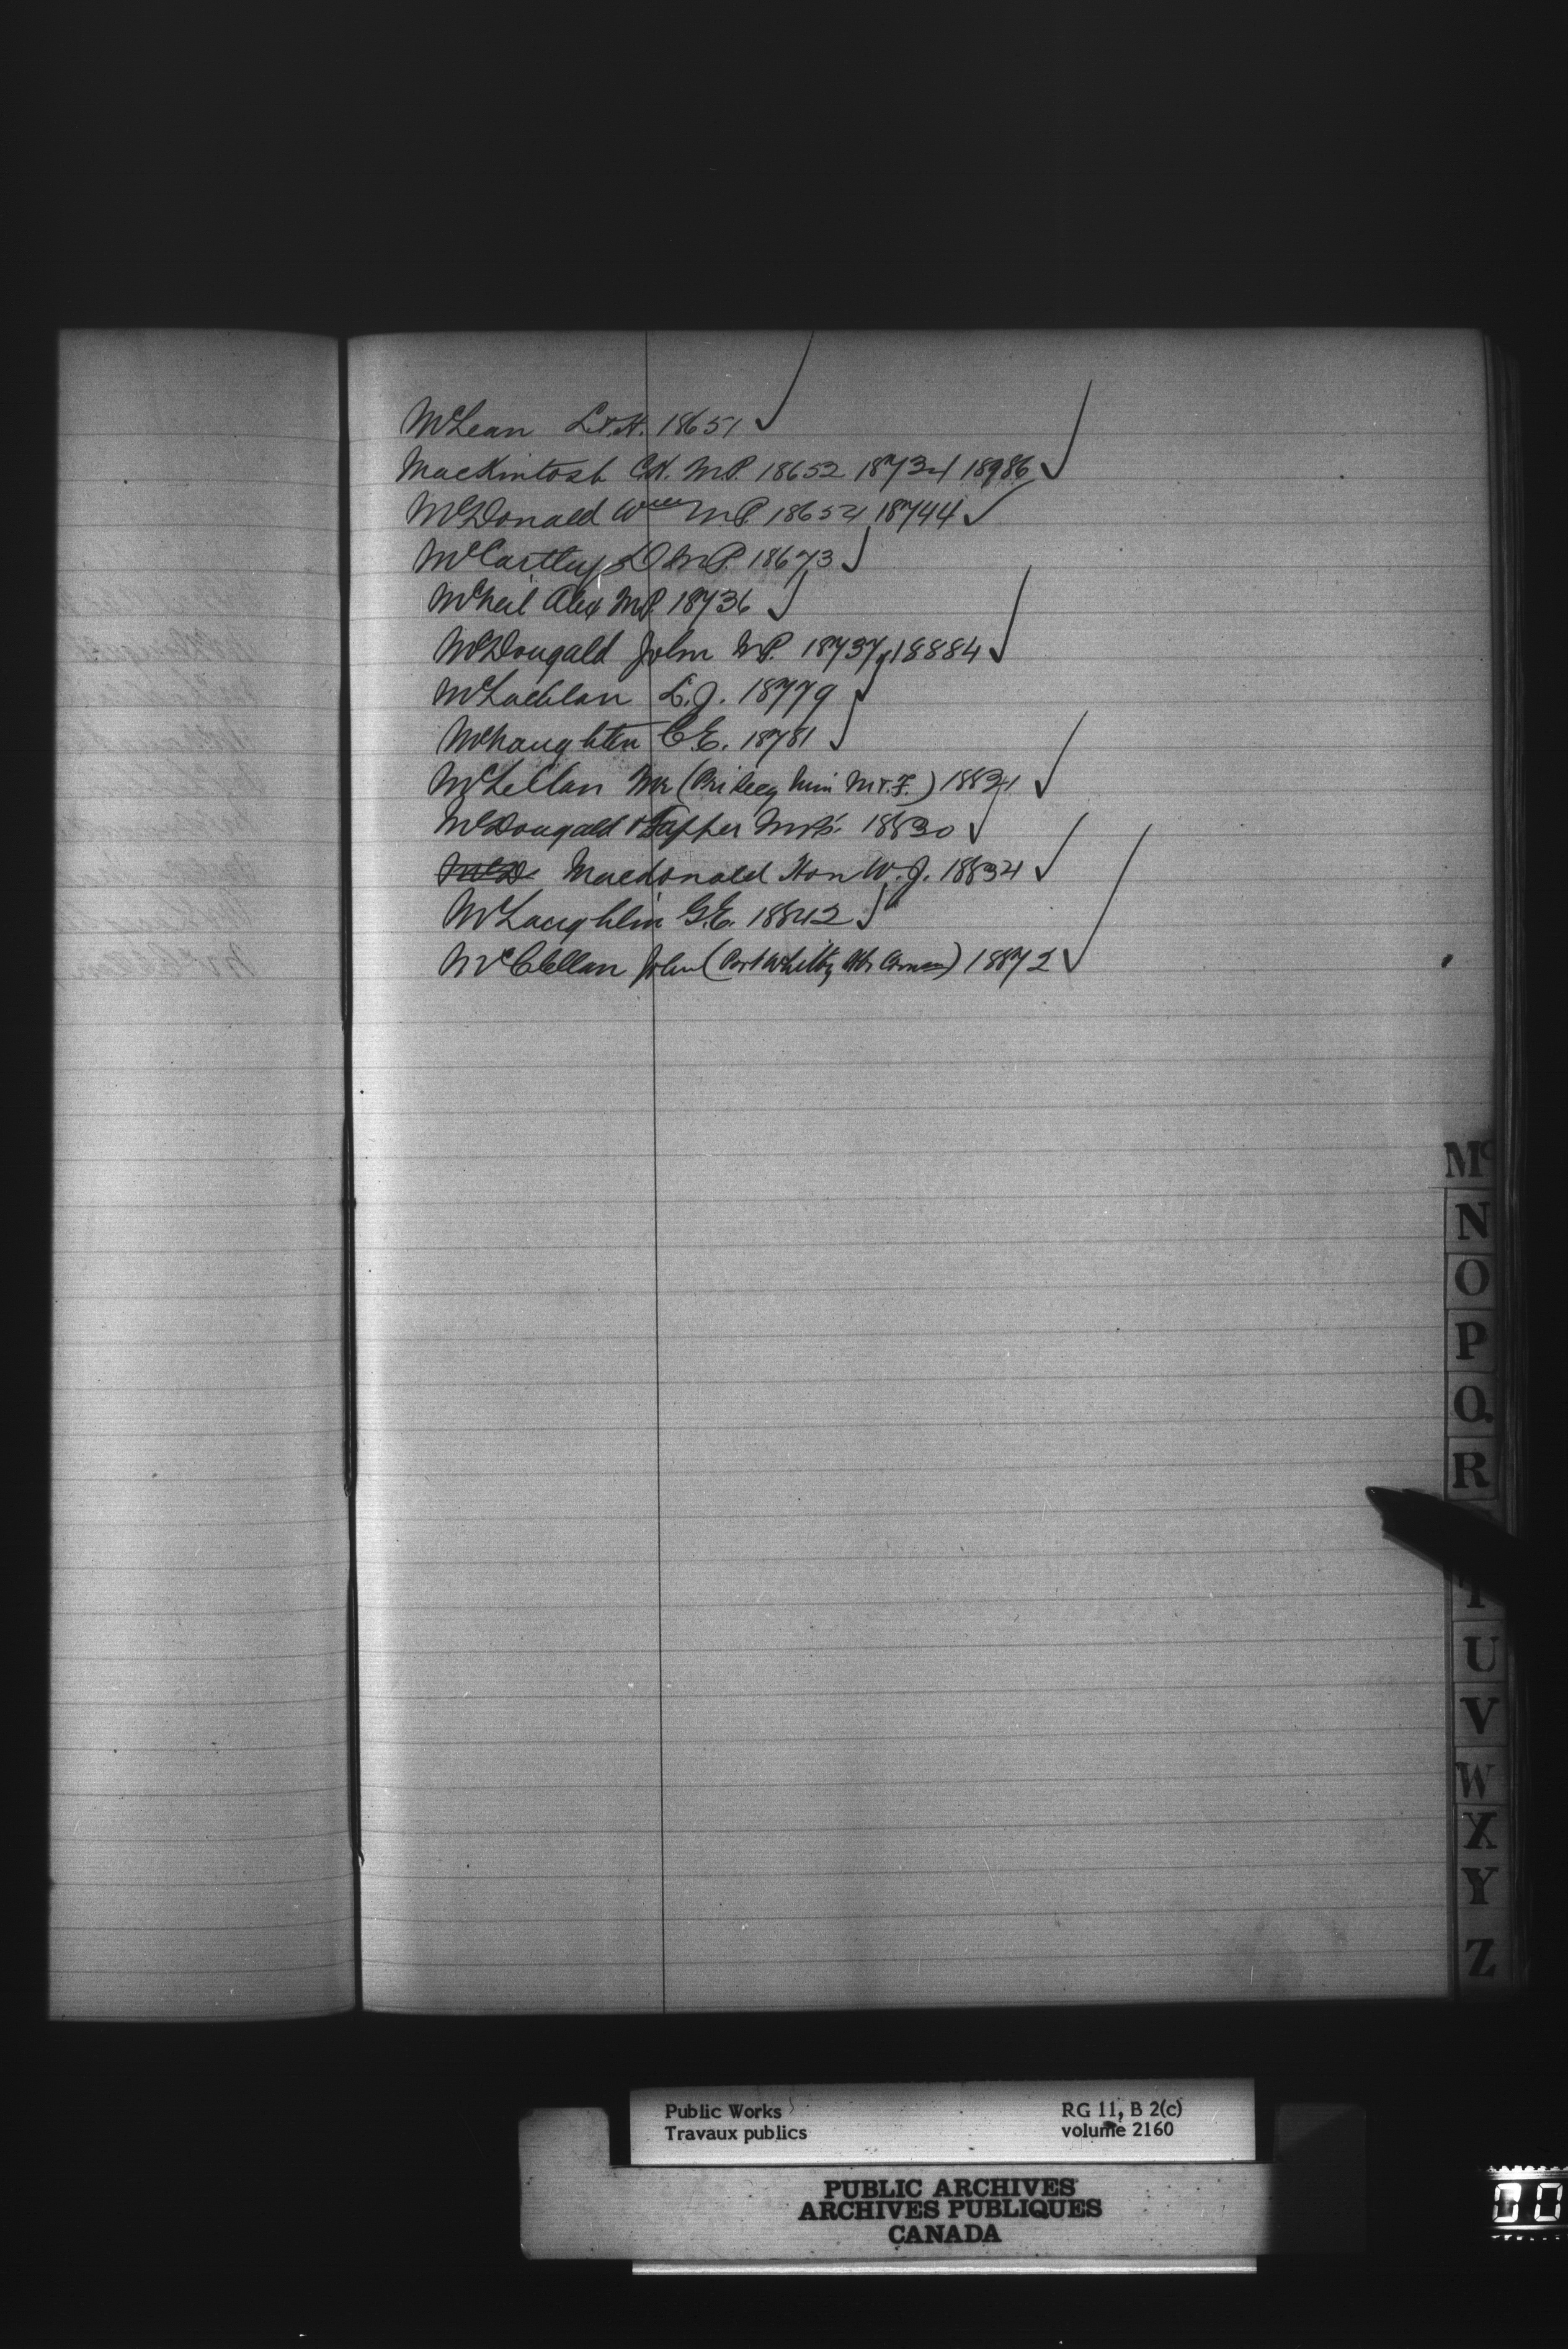 McLean L.&H. 18651 ✓
MacKintosh C.H. M.P. 18652 18734 18986 ✓
McDonald Wm M.P. 18654, 18744 ✓
McCarthy D M.P. 18673 ✓
McNeil Alex M.P. 18736 ✓
McDougald John M.P. 18737, 18884 ✓
McLachlan L.J. 18779 ✓
McNaughten C.E. 18781 ✓
McLellan Mr (Pri Secy Min M. & F.) 18824 ✓
McDougald & Tupper M.P's. 18830 ✓
McD Macdonald Hon W.J. 18834 ✓
McLaughlin G.E. 18842 ✓
McClellan John (Port Whitby Hbr) 18872 ✓
Mc
N
O
P
Q
R
T
U
V
W
X
Y
Z
Public Works RG 11, B 2(c)
Travaux publics volume 2160
PUBLIC ARCHIVES
ARCHIVES PUBLIQUES
CANADA